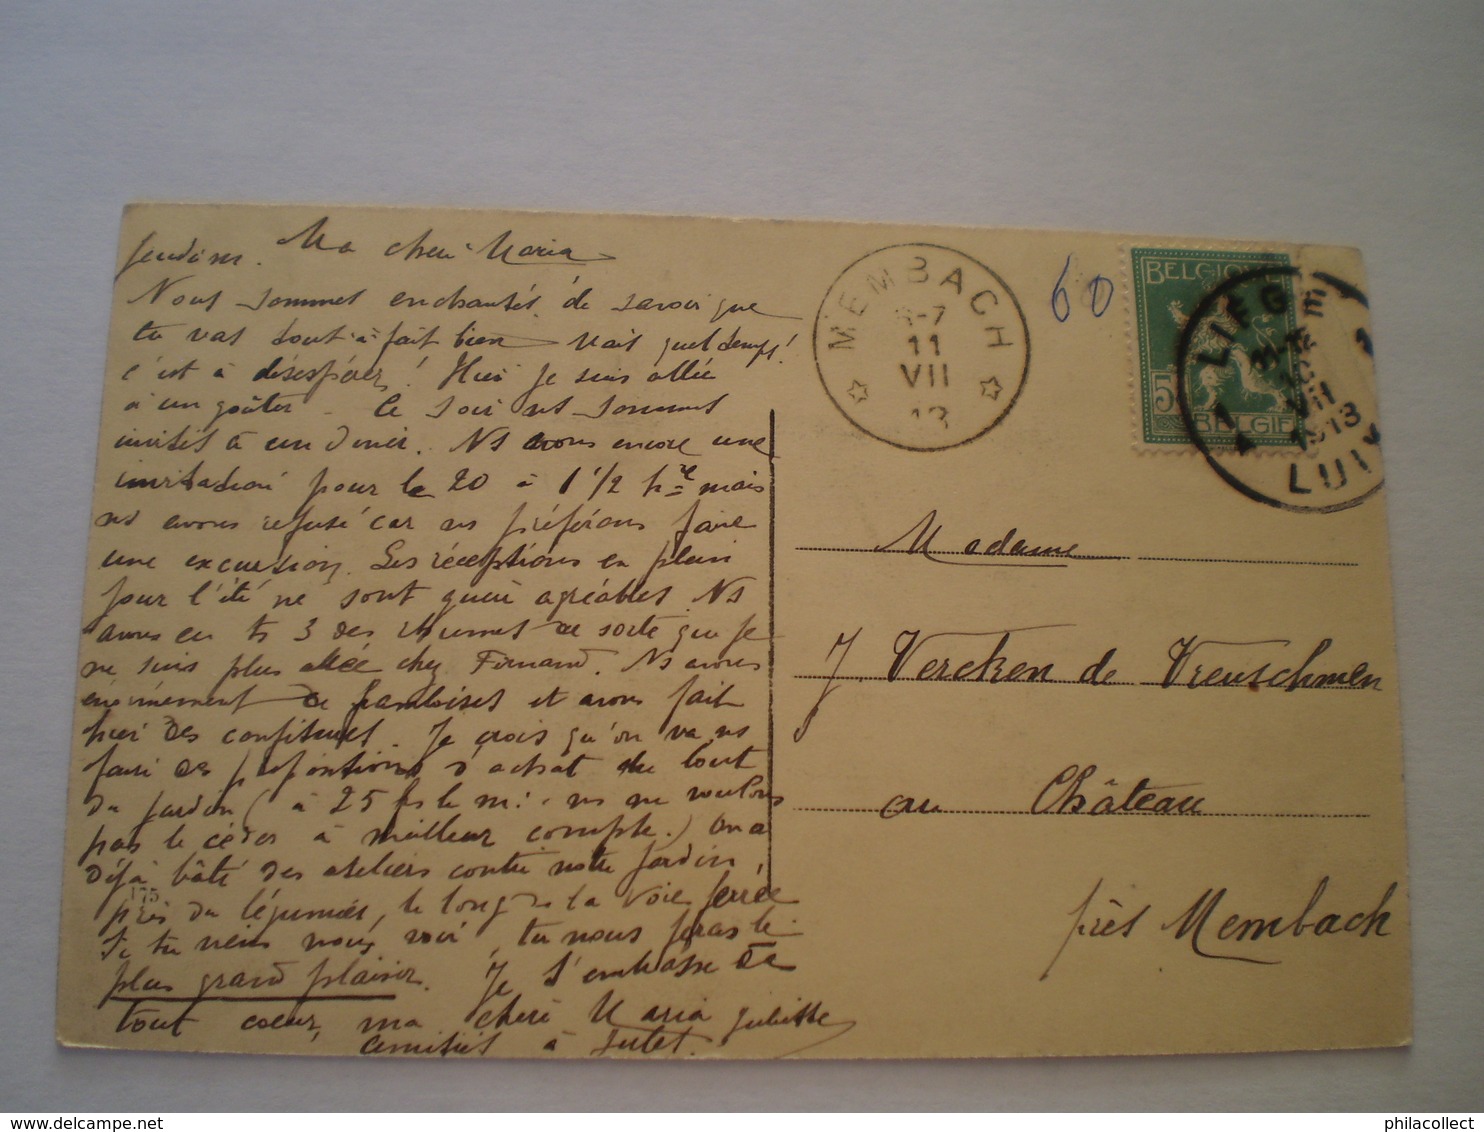 Ma chère Maria
Nous sommes enchantés de savoir que
tu vas tout à fait bien Mais quel temps!
c'est à désespérer! Hier je suis allée
à un goûter. Ce soir ns sommes
invités à un diner. Ns avons encore une
invitation pour le 20 à 1 1/2 hre mais
ns avons refusé car ns préférons faire
une excursion. Les réceptions en plein
jour l'été ne sont guère agréables. Ns
avons eu ts 3 des rhumes de sorte que je
ne suis plus allée chez Fernand. Ns avons
énormément de framboises et avons fait
hier des confitures. Je crois qu'on va ns
faire des propositions d'achat du bout
du jardin (à 25 frs le m: ns ne voulons
pas le céder à meilleur compte.) On a
déjà bâti des ateliers contre notre jardin,
175
près du légumier, le long de la voie ferrée
Si tu viens nous voir, tu nous feras le
plus grand plaisir. Je t'embrasse de
tout coeur, ma chère Maria Juliette
Amitiés à Jules.
MEMBACH
11
VII
13
60
BELGIQUE
5
BELGIE
LIEG
VII
1913
LUI
Madame
J. Vercken de Vreuschmen
au Château
près Membach
philacollect